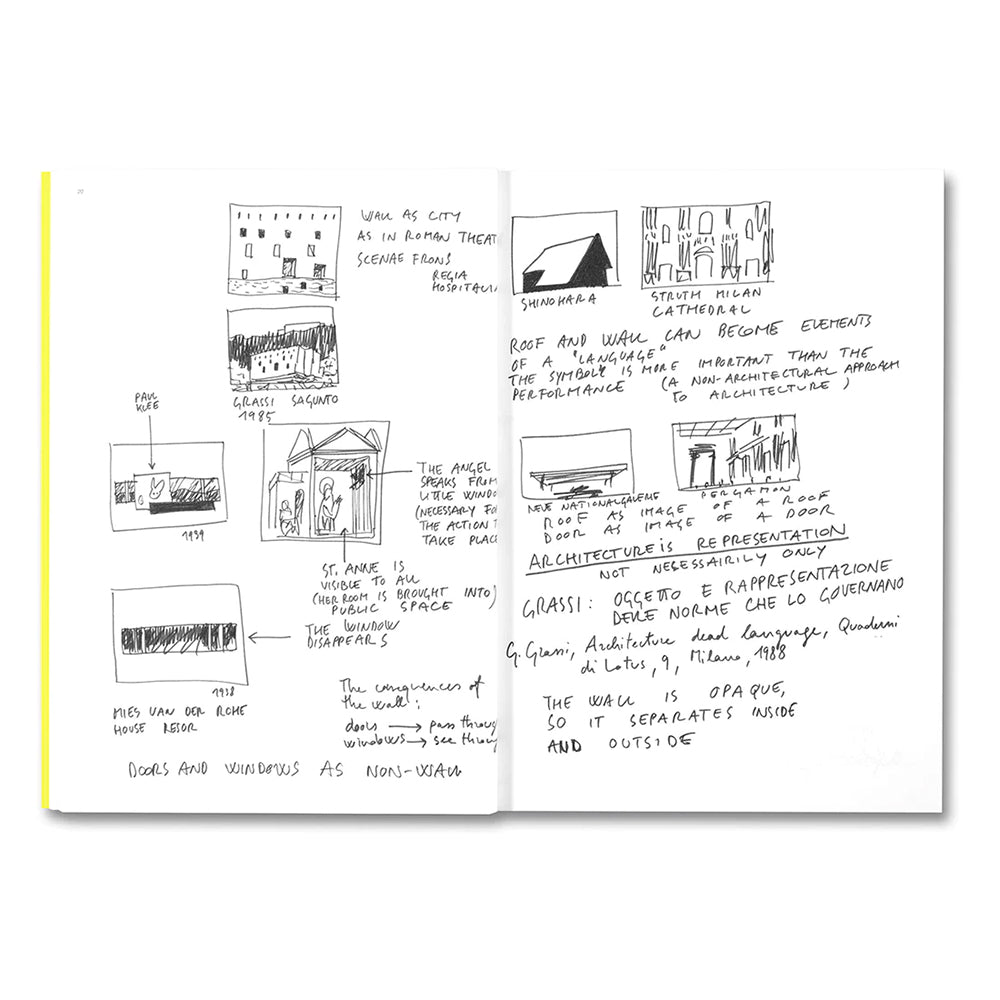 20
WALL AS CITY
AS IN ROMAN THEAT
SCENAE FRONS
REGIA
HOSPITALIA
GRASSI SAGUNTO
1985
PAUL
KLEE
1939
THE ANGEL
SPEAKS FROM
LITTLE WINDO
(NECESSARY FO
THE ACTION T
TAKE PLAC
ST. ANNE IS
VISIBLE TO ALL
(HER ROOM IS BROUGHT INTO)
PUBLIC SPACE
THE WINDOW
DISAPPEARS
1938
MIES VAN DER ROHE
HOUSE RESOR
The consequences of
the wall:
doors → pass throug
windows → see throug
DOORS AND WINDOWS AS NON-WALL
SHINOHARA
STRUTH MILAN
CATHEDRAL
ROOF AND WALL CAN BECOME ELEMENTS
OF A "LANGUAGE"
THE SYMBOL IS MORE IMPORTANT THAN THE
PERFORMANCE (A NON-ARCHITECTURAL APPROACH
TO ARCHITECTURE)
NEUE NATIONALGALERIE
PERGAMON
ROOF AS IMAGE OF A ROOF
DOOR AS IMAGE OF A DOOR
ARCHITECTURE IS REPRESENTATION
NOT NECESSAIRILY ONLY
GRASSI: OGGETTO E RAPPRESENTAZIONE
DELLE NORME CHE LO GOVERNANO
G. Grassi, Architecture dead language, Quaderni
di Lotus, 9, Milano, 1988
THE WALL IS OPAQUE,
SO IT SEPARATES INSIDE
AND OUTSIDE